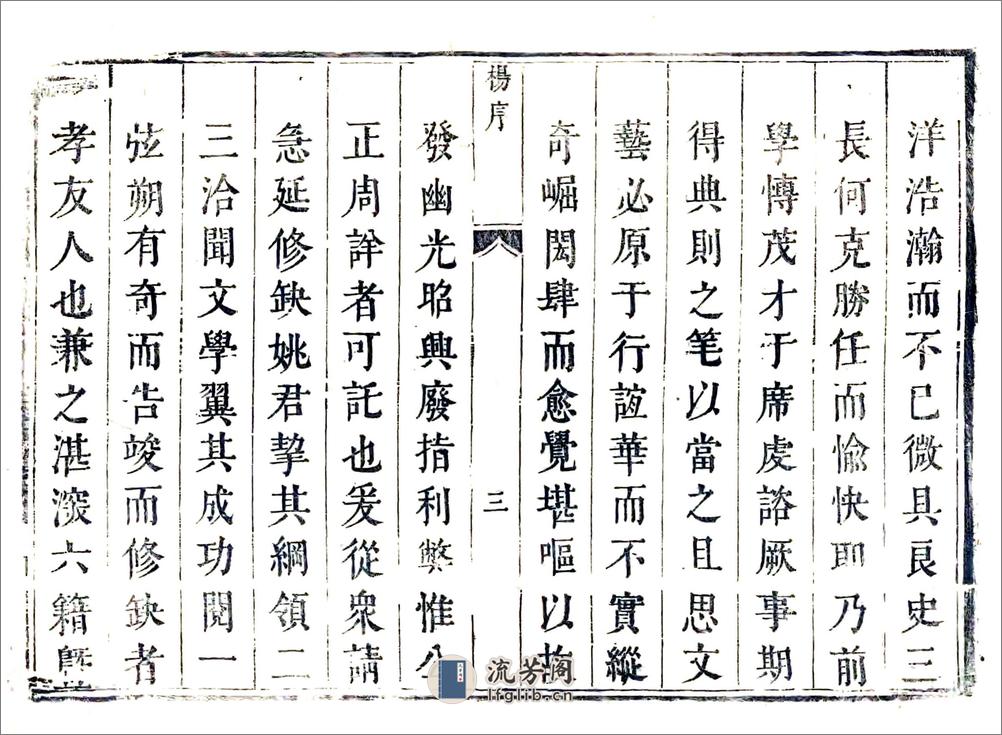 洋浩瀚而不已微具良史三
長何克勝任而愉快即乃前
學博茂才于席處諮厥事期
得典則之笔以當之且思文
藝必原于行誼華而不實縱
奇崛閎肆而愈覺堪嘔以故
楊序
三
發幽光昭興廢指利弊惟公
正周詳者可託也爰從眾請
急延修缺姚君挈其綱領二
三洽聞文學翼其成功閱一
弦朔有奇而告竣而修缺者
孝友人也兼之湛深六籍
流芳阁
lfglib.cn